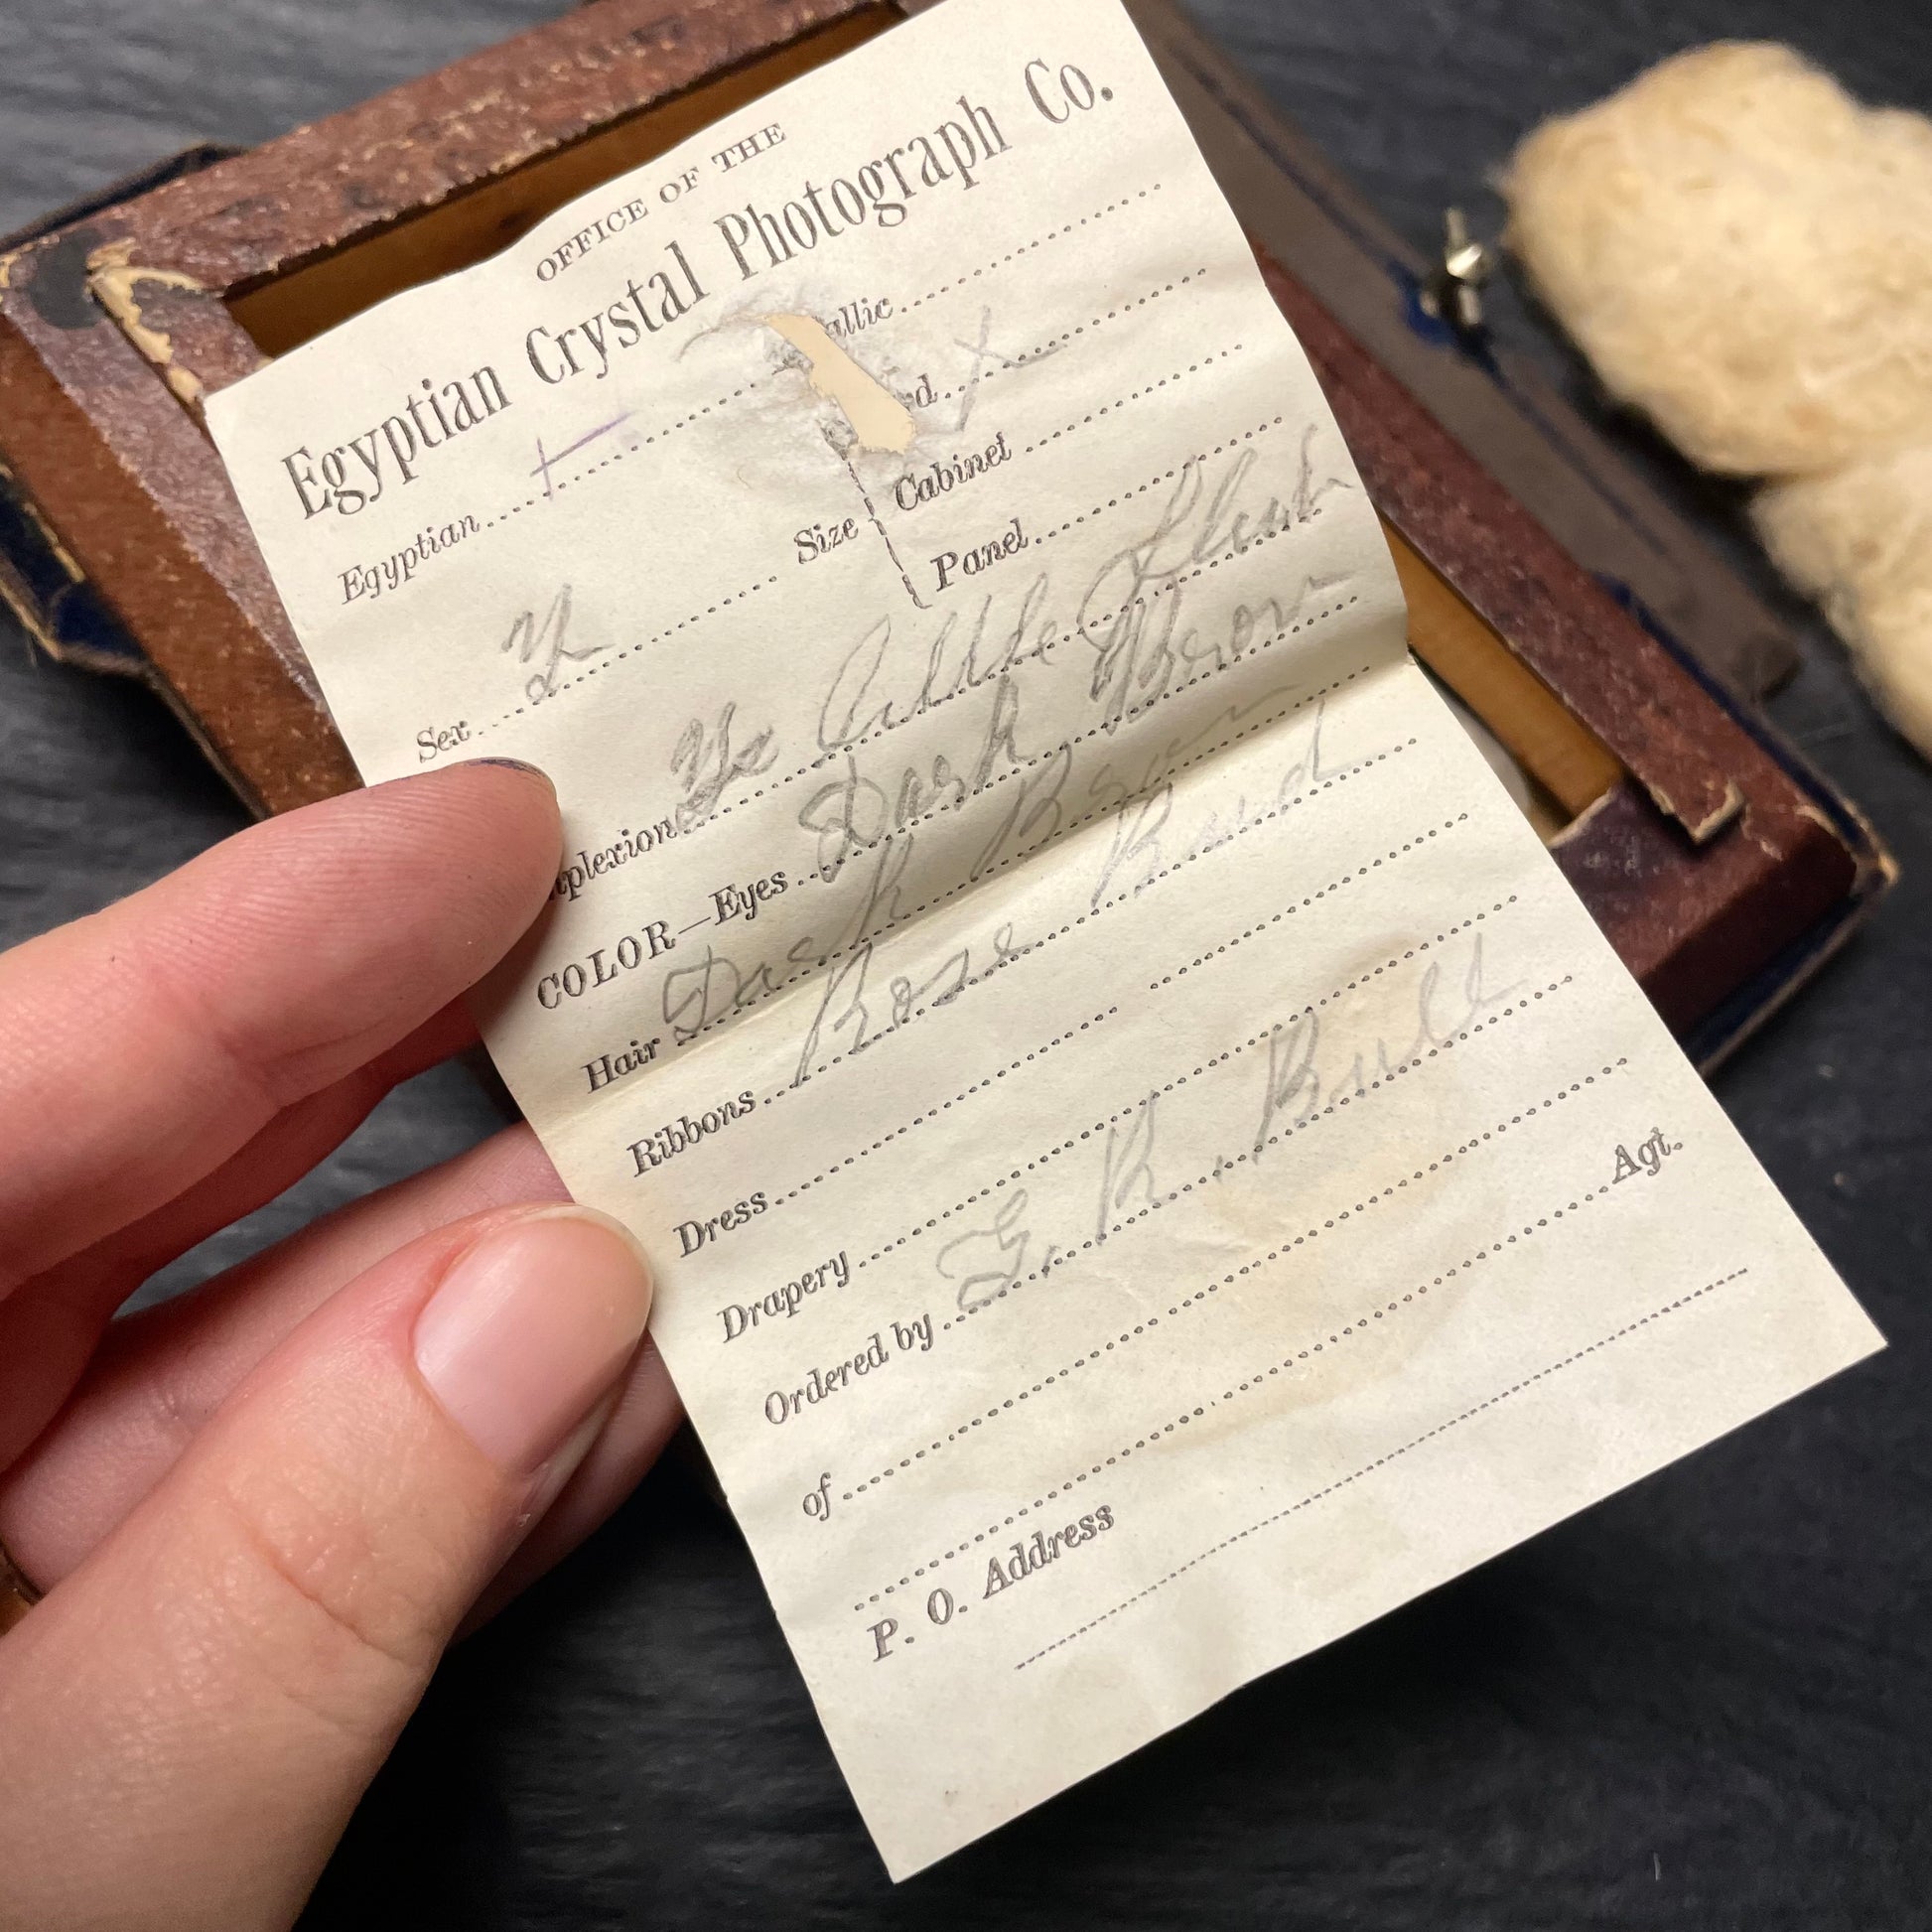 OFFICE OF THE
Egyptian Crystal Photograph Co.
Egyptian + allic
d X
Sex Size Cabinet
Panel
plexion Little Flush
COLOR—Eyes Dark Brown
Hair Dark Brown
Ribbons Rose Baud
Dress
Drapery
Ordered by R. Bull
of
Agt.
P. O. Address